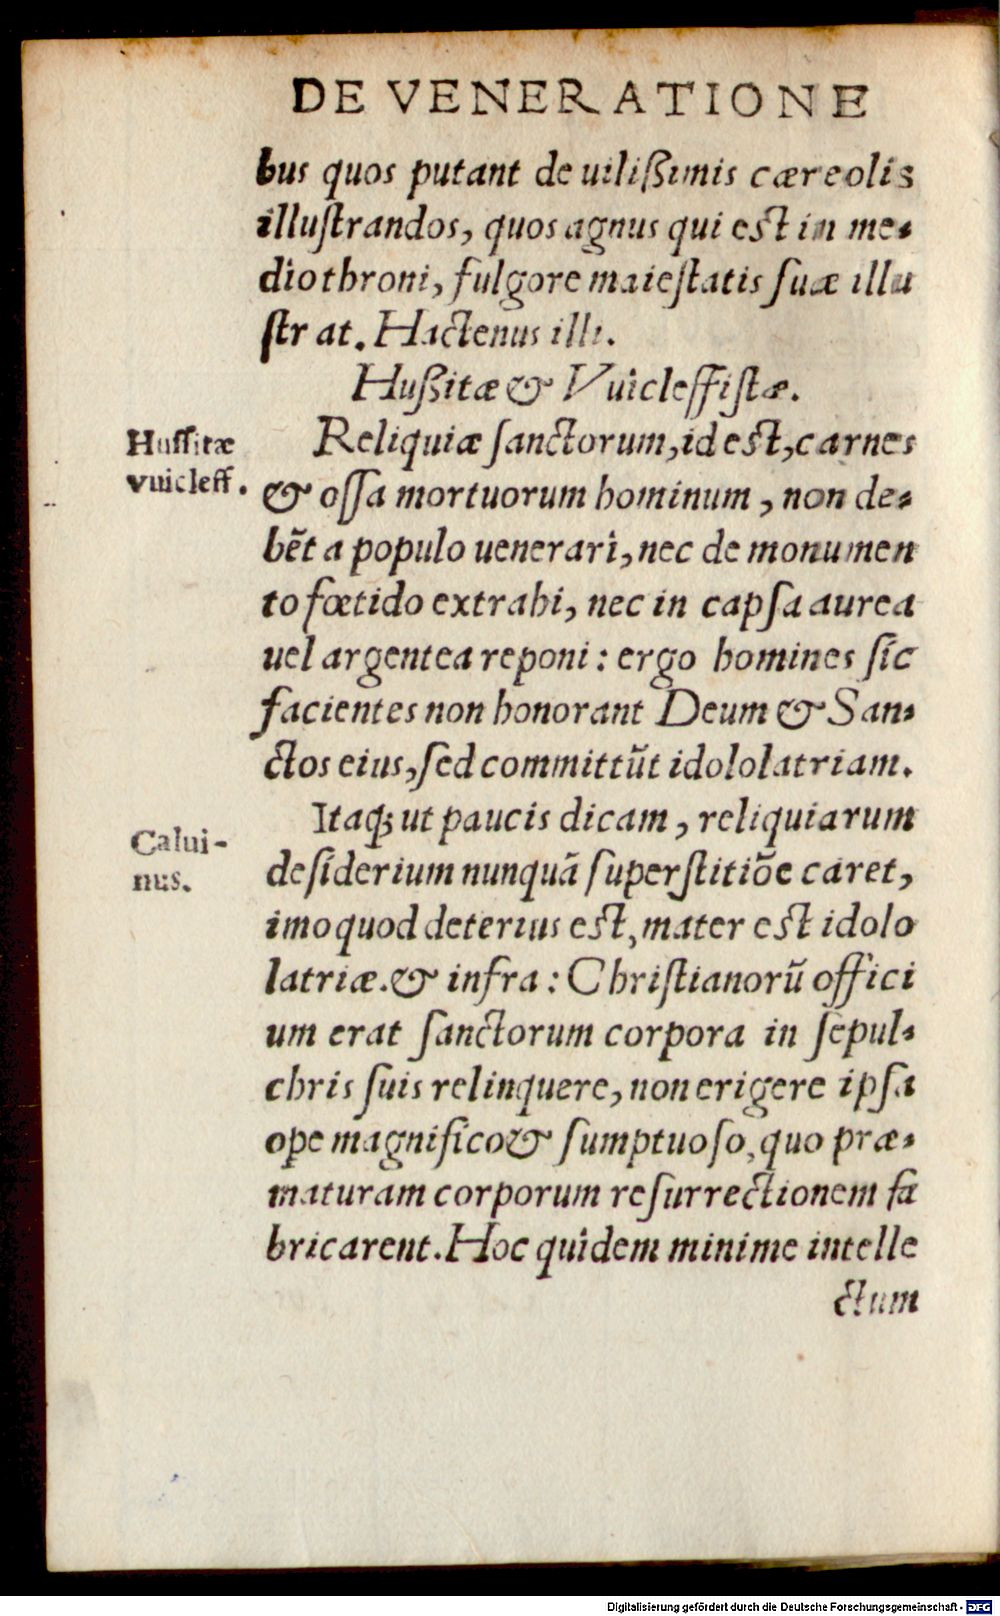 DE VENERATIONE
bus quos putant de uilißimis cæreolis
illuſtrandos, quos agnus qui eſt in me-
dio throni, fulgore maieſtatis ſuæ illu
ſtrat. Hactenus illi.
Hußitæ & Vuicleffiſtæ.
Huſſitæ
vuicleff.
Reliquiæ ſanctorum, id eſt, carnes
& oſſa mortuorum hominum, non de-
bẽt a populo uenerari, nec de monumen
to fœtido extrahi, nec in capſa aurea
uel argentea reponi: ergo homines ſic
facientes non honorant Deum & San-
ctos eius, ſed committũt idololatriam.
Calui-
nus.
Itaq; ut paucis dicam, reliquiarum
deſiderium nunquã ſuperſtitiõe caret,
imo quod deterius eſt, mater eſt idolo
latriæ. & infra: Chriſtianorũ offici
um erat ſanctorum corpora in ſepul-
chris ſuis relinquere, non erigere ipſa
ope magnifico & ſumptuoſo, quo præ-
maturam corporum reſurrectionem fa
bricarent. Hoc quidem minime intelle
ctum
Digitalisierung gefördert durch die Deutsche Forschungsgemeinschaft - DFG